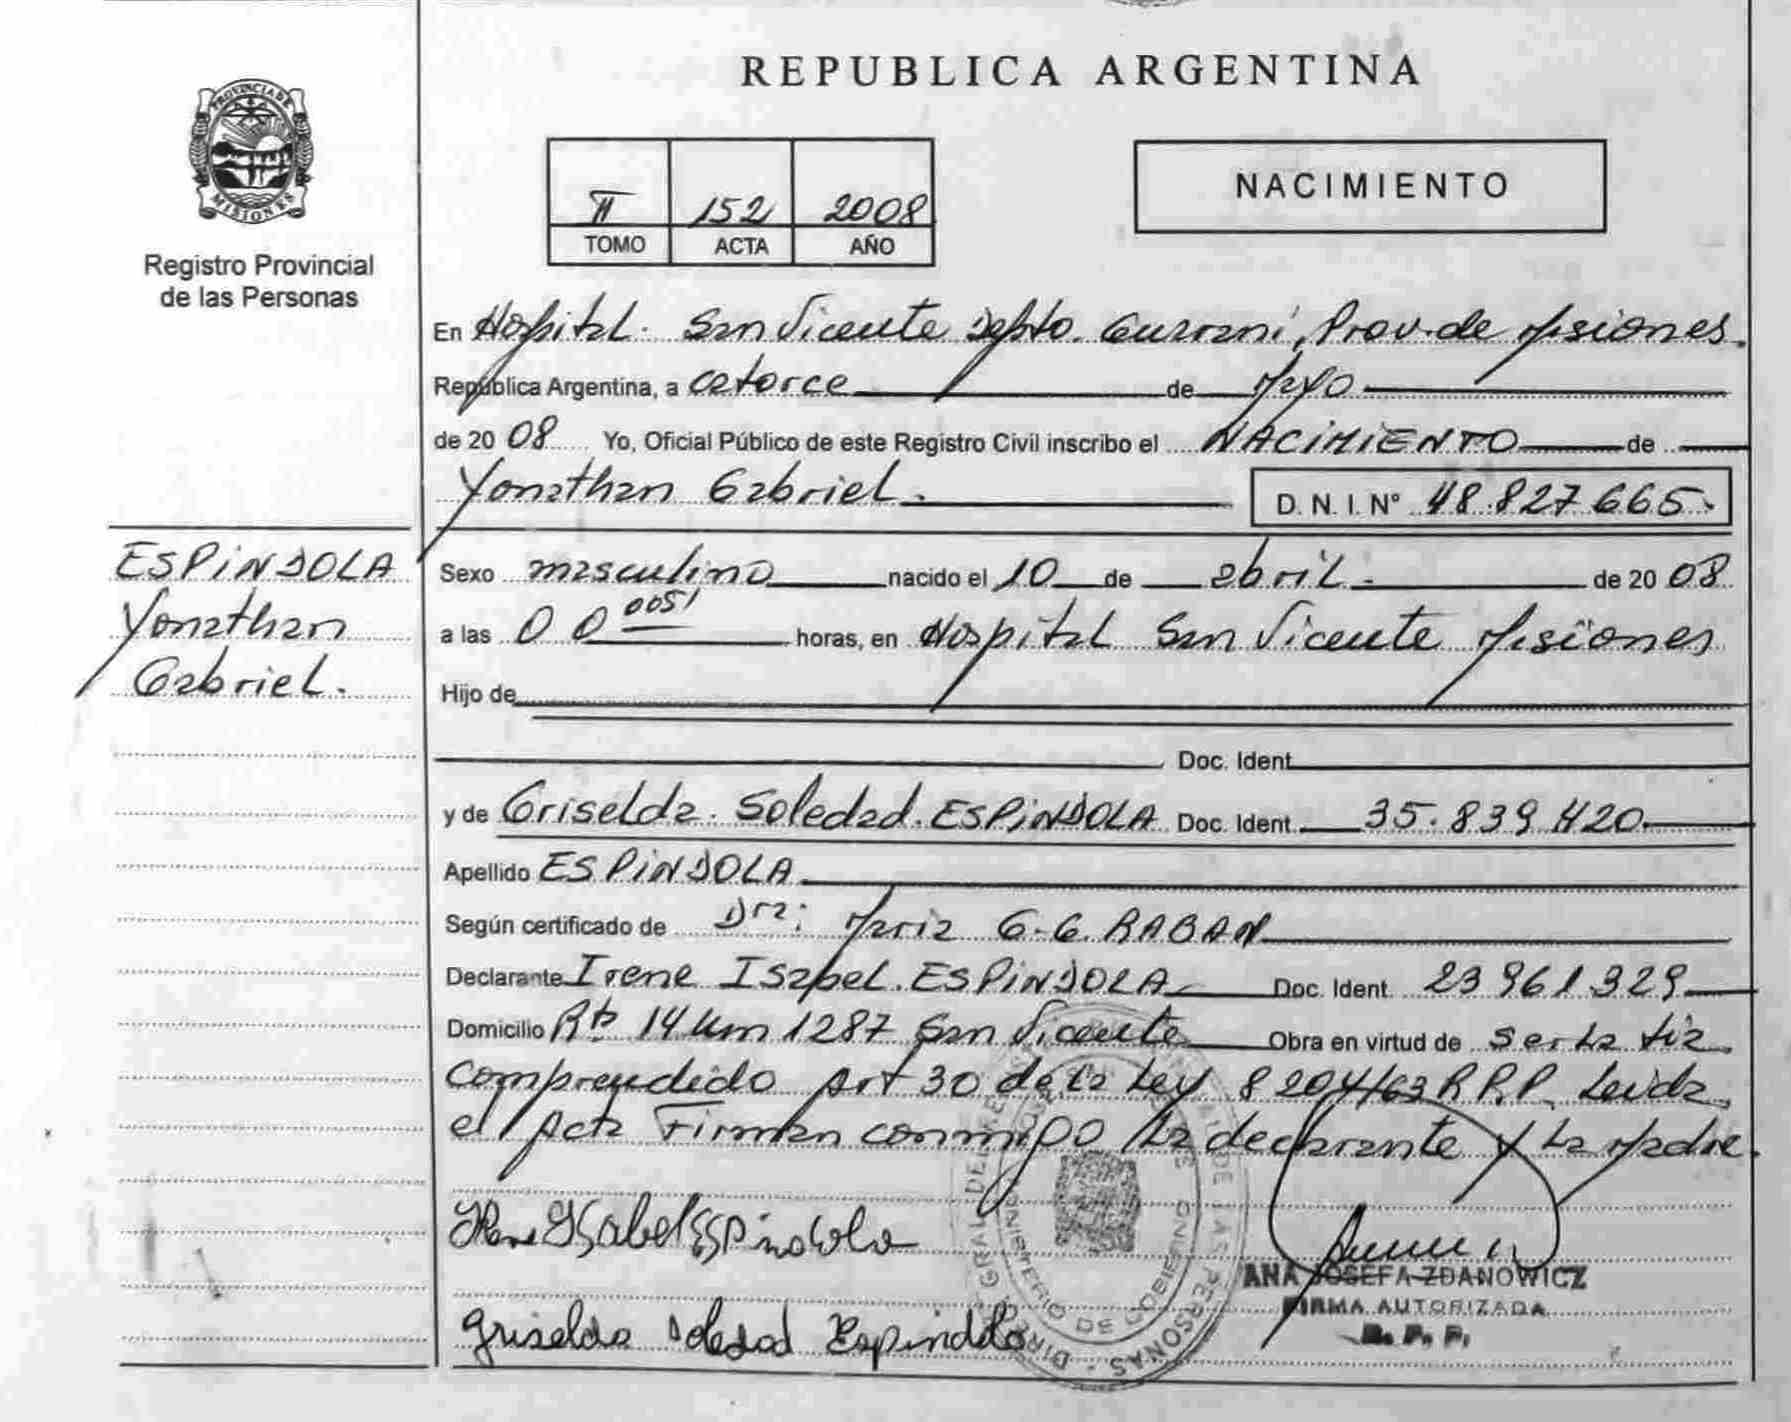 REPUBLICA ARGENTINA
PROVINCIA DE
MISIONES
Registro Provincial
de las Personas
II 152 2008
TOMO ACTA AÑO
NACIMIENTO
En Hospital. San Vicente Depto. Guarani, Prov. de Misiones.
República Argentina, a catorce de Mayo
de 2008 Yo, Oficial Público de este Registro Civil inscribo el NACIMIENTO de
Yonathan Gabriel. D. N. I. N° 48.827665.
ESPINDOLA
Yonathan
Gabriel.
Sexo masculino nacido el 10 de abril. de 2008
a las 00 0051 horas, en Hospital San Vicente Misiones
Hijo de
Doc. Ident.
y de Griselda. Soledad. ESPINDOLA Doc. Ident. 35.839 420
Apellido ESPINDOLA
Según certificado de Dra: Maria G. G. RABAN
Declarante Irene Isabel. ESPINDOLA Doc. Ident. 23 961.329
Domicilio 14 Km 1287 San Vicente Obra en virtud de Ser La tia
Comprendido Art 30 de la Ley 8204/63 R.R.P. Leida
el Acta Firman conmigo La declarante y La Madre.
Irene Isabel Espindola
Griselda Soledad Espindola
MINISTERIO DE GOBIERNO
ANA JOSEFA ZDANOWICZ
FIRMA AUTORIZADA
R. P. P.